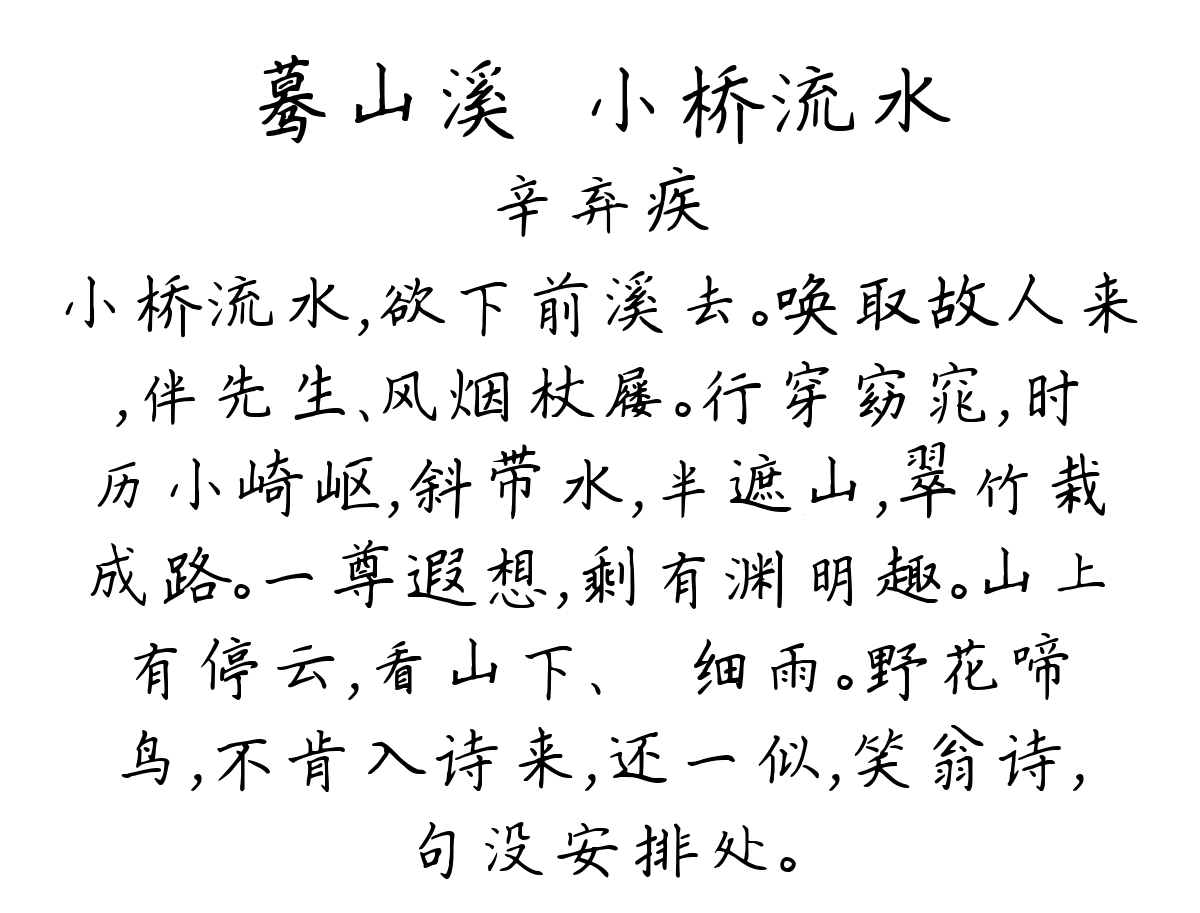 蓦山溪 小桥流水
辛弃疾
小桥流水,欲下前溪去。唤取故人来
,伴先生、风烟杖屦。行穿窈窕,时
历小崎岖,斜带水,半遮山,翠竹栽
成路。一尊遐想,剩有渊明趣。山上
有停云,看山下、 细雨。野花啼
鸟,不肯入诗来,还一似,笑翁诗,
句没安排处。